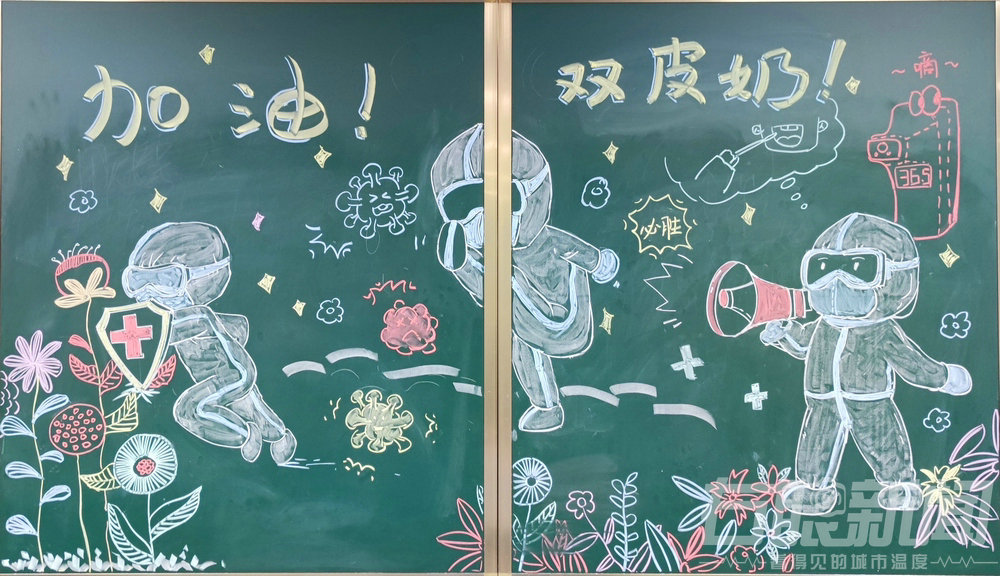 加油！
双皮奶！
~嘀~
36.5
必胜
看得见的城市温度